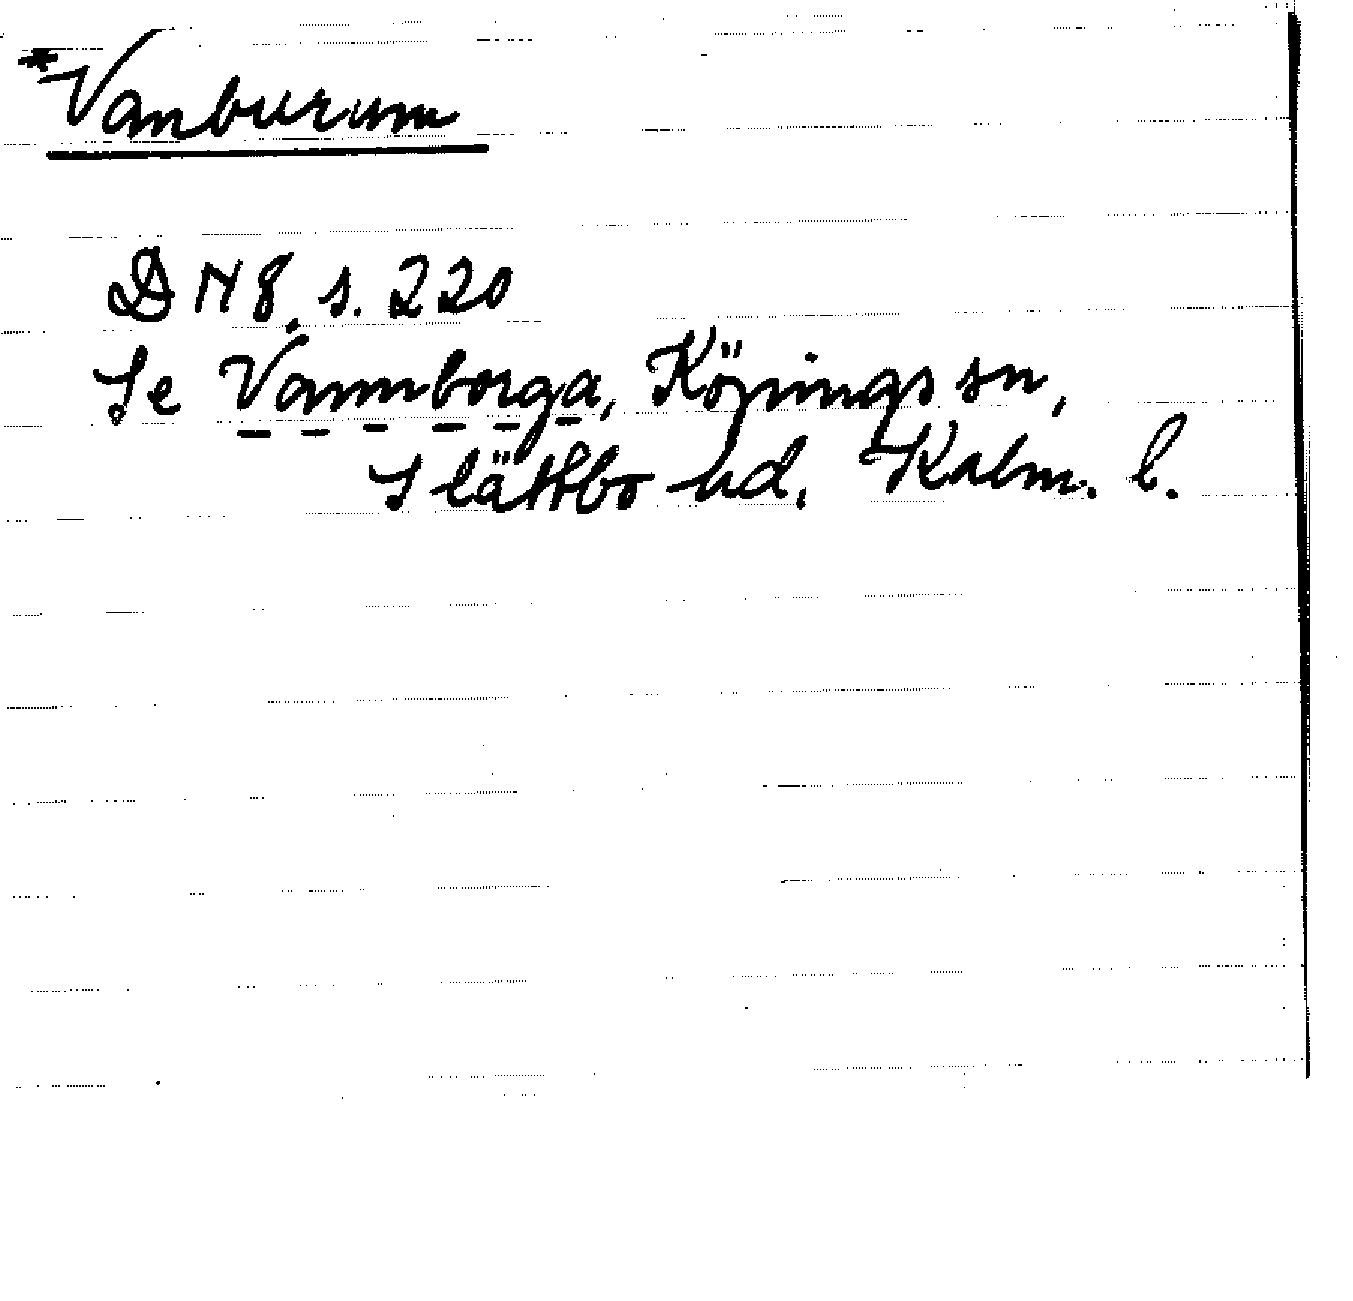 *Vanburum
DN 8, s. 220
Se Vannborga, Köpings sn,
Slättbo hd. Kalm. l.